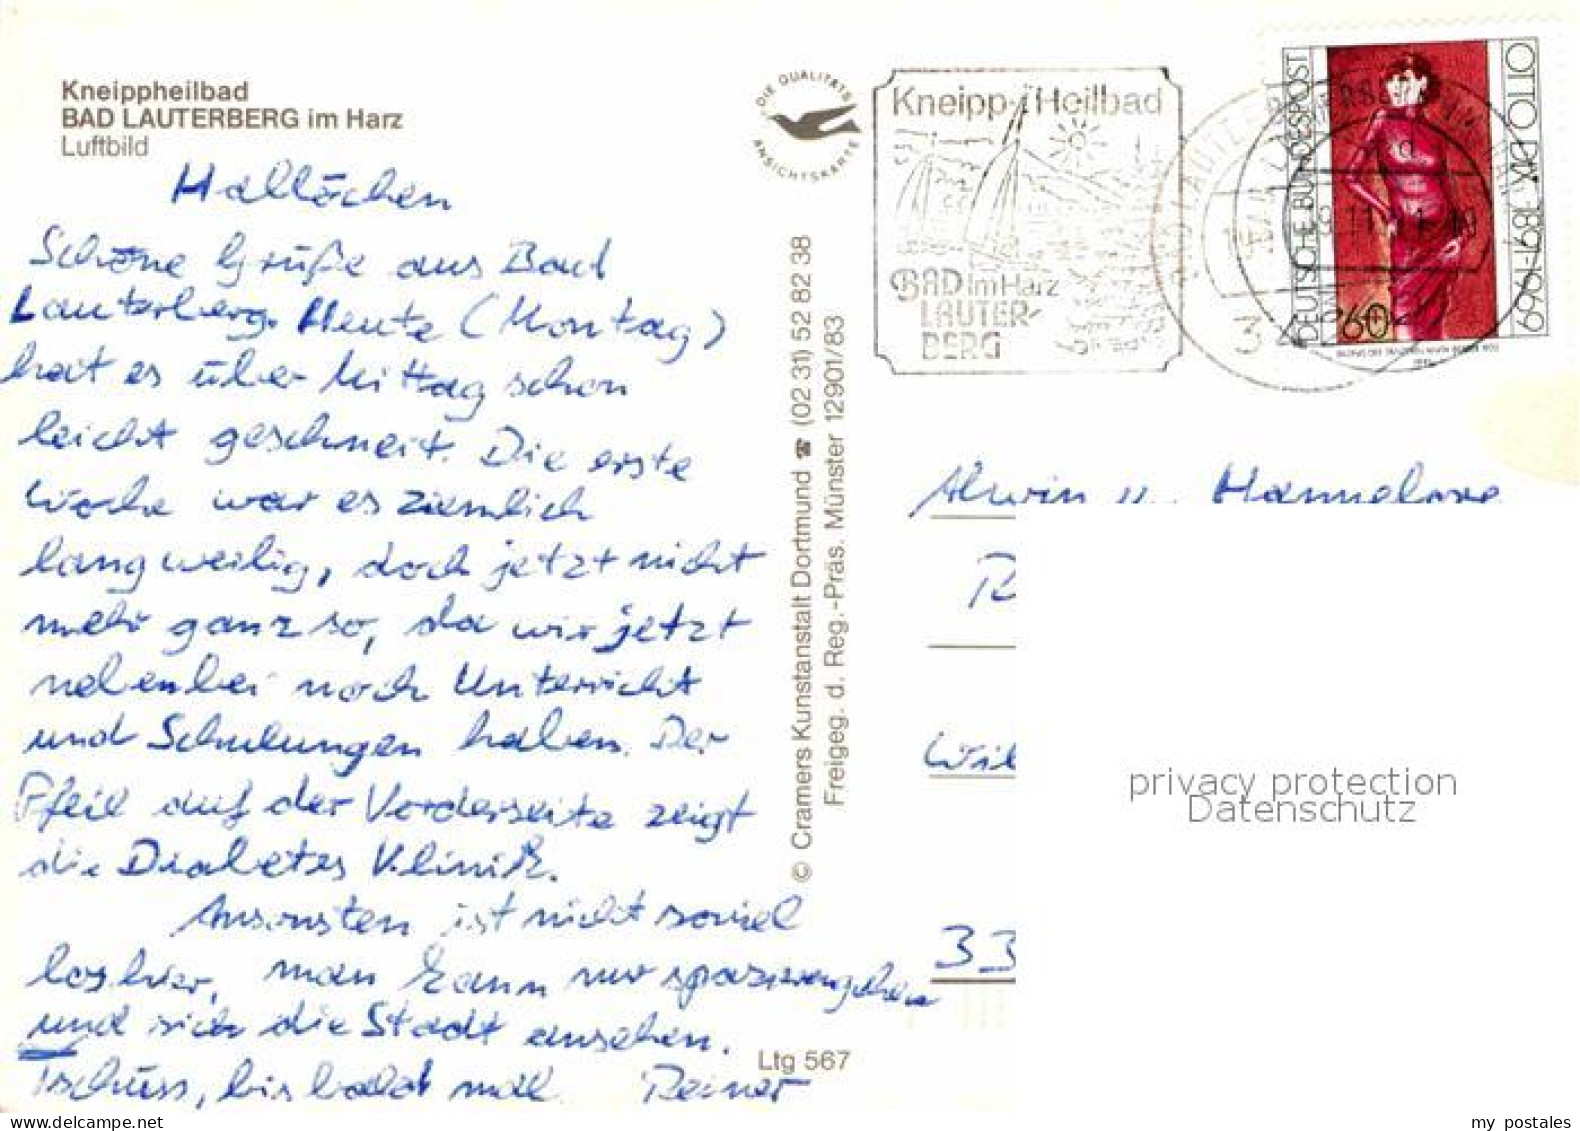 Kneippheilbad
BAD LAUTERBERG im Harz
Luftbild
Hallöchen
Schöne Grüße aus Bad
Lauterberg. Heute (Montag)
hat es über Mittag schon
leicht geschneit. Die erste
Woche war es ziemlich
langweilig, doch jetzt nicht
mehr ganz so, da wir jetzt
nebenbei noch Unterricht
und Schulungen haben. Der
Pfeil auf der Vorderseite zeigt
die Diabetes Klinik.
Ansonsten ist nicht soviel
los hier, man kann nur spazierengehen
und sich die Stadt ansehen.
Tschüss, bis bald mal Reiner
DIE QUALITÄTS
ANSICHTSKARTE
© Cramers Kunstanstalt Dortmund ☎ (02 31) 52 82 38
Freigeg. d. Reg.-Präs. Münster 12901/83
Ltg 567
Kneipp-Heilbad
BAD im Harz
LAUTER-
BERG
DEUTSCHE BUNDESPOST
OTTO DIX 1891-1969
60
Alwin u. Hannelore
R
Wil
33
privacy protection
Datenschutz
my postales